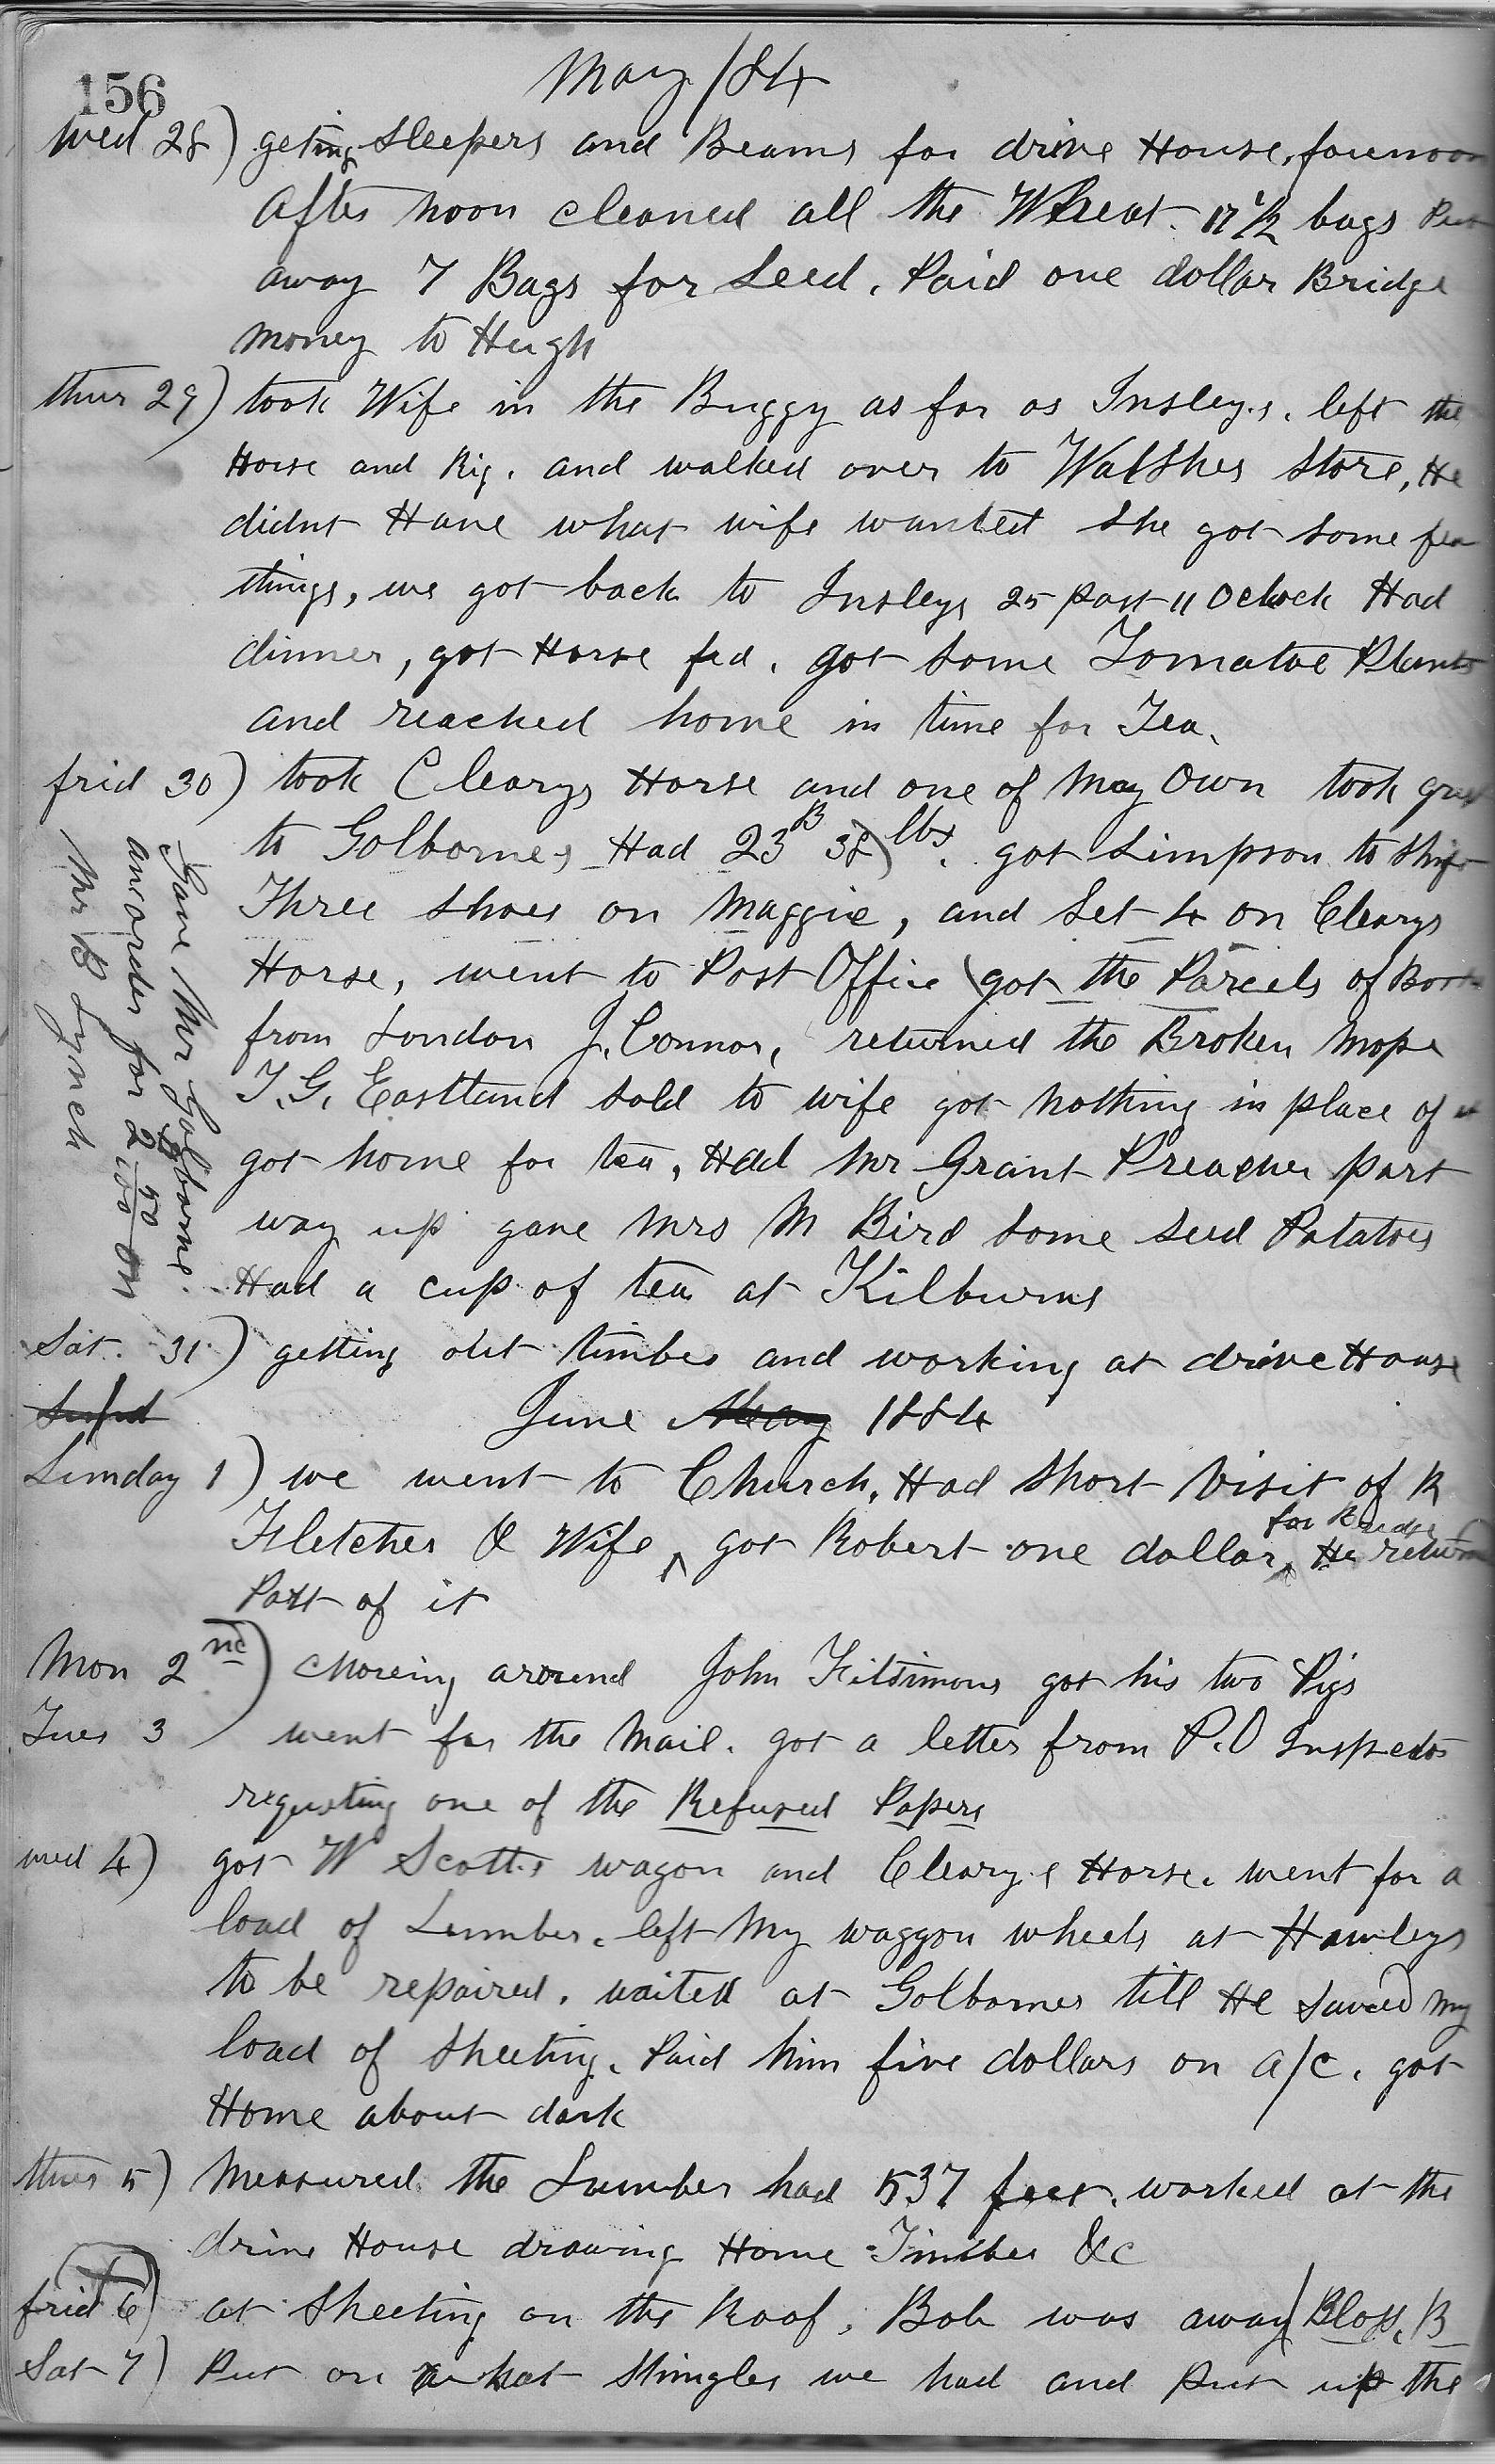 156
May /84
Wed 28) geting Sleepers and Beams for drive House, forenoon
After noon cleaned all the Wheat. 17 1/2 bags Put
away 7 Bags for Seed. Paid one dollar Bridge
money to Hugh
thur 29) took Wife in the Buggy as far as Insley.s. left the
Horse and Rig. and walked over to Walshes Store, He
didnt Have what wife wanted She got some few
things, we got back to Insleys 25 past 11 Oclock Had
dinner, got Horse fed. got some Tomatoe Plants
and reached home in time for Tea.
frid 30) took Clearys Horse and one of My Own took grist
to Golbornes Had 23 B 38 lbs. got Simpson to Shift
Three Shoes on Maggie, and Set 4 on Clearys
Horse, went to Post Office got the Parcels of
from London J. Connor, returned the Broken Mope
T. G. Eastland sold to wife got nothing in place of it
got home for tea, Had Mr Grant Preacher part
way up gave Mrs M Bird some seed Potatoes
Had a cup of tea at Kilburns
Gave Mr Golborne
an order for 2 50/100 on
Mr B Lynch
Sat. 31) getting out timber and working at drive House
June May 1884
Sunday 1) we went to Church. Had Short Visit of R
Fletcher & Wife, got Robert one dollar for Bridge He return
Part of it
Mon 2nd) choreing around John Fitsimons got his two Pigs
Tues 3 went for the Mail. got a letter from P.O Inspector
requsting one of the Refused Papers
wed 4) got W Scotts wagon and Cleary.s Horse. went for a
load of Lumber. left My waggon wheels at Hawleys
to be repaired. waited at Golbornes till He Sawed my
load of Sheeting. Paid him five dollars on a/c. got
Home about dark
thurs 5) Measured the Lumber had 537 feet. worked at the
drive House drawing Home Timber &c
frid 6) at Sheeting on the Roof. Bob was away Bloss. B
Sat 7) Put on what Shingles we had and put up the